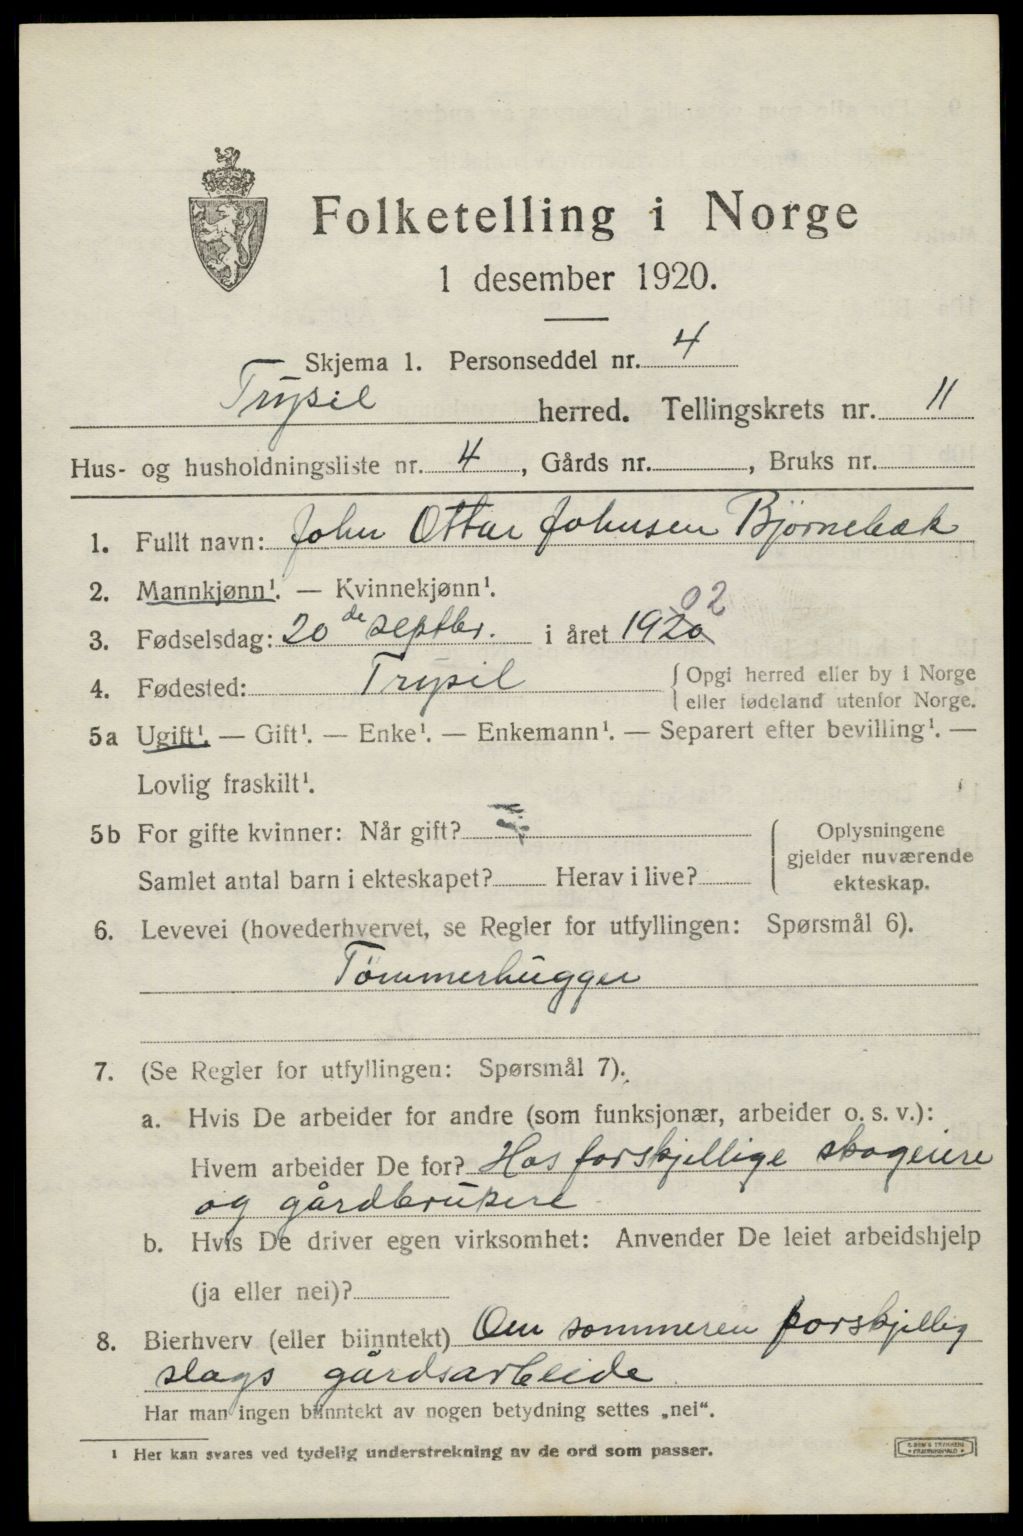 Folketelling i Norge
1 desember 1920.
Skjema 1. Personseddel nr. 4
Trysil herred. Tellingskrets nr. 11
Hus- og husholdningsliste nr. 4, Gårds nr. , Bruks nr.
1. Fullt navn: John Ottar Johnsen Bjørnebæk
2. Mannkjønn¹. — Kvinnekjønn¹.
02
3. Fødselsdag: 20de septbr. i året 1920
4. Fødested: Trysil { Opgi herred eller by i Norge
eller fødeland utenfor Norge.
5a Ugift¹. — Gift¹. — Enke¹. — Enkemann¹. — Separert efter bevilling¹. —
Lovlig fraskilt¹.
5b For gifte kvinner: Når gift? { Oplysningene
gjelder nuværende
Samlet antal barn i ekteskapet? Herav i live? ekteskap.
6. Levevei (hovederhvervet, se Regler for utfyllingen: Spørsmål 6).
Tømmerhugger
7. (Se Regler for utfyllingen: Spørsmål 7).
a. Hvis De arbeider for andre (som funksjonær, arbeider o. s. v.):
Hvem arbeider De for? Hos forskjellige skogeiere
og gårdbrukere
b. Hvis De driver egen virksomhet: Anvender De leiet arbeidshjelp
(ja eller nei)?
8. Bierhverv (eller biinntekt) Om sommeren forskjellig
slags gårdsarbeide
Har man ingen biinntekt av nogen betydning settes „nei“.
¹ Her kan svares ved tydelig understrekning av de ord som passer.